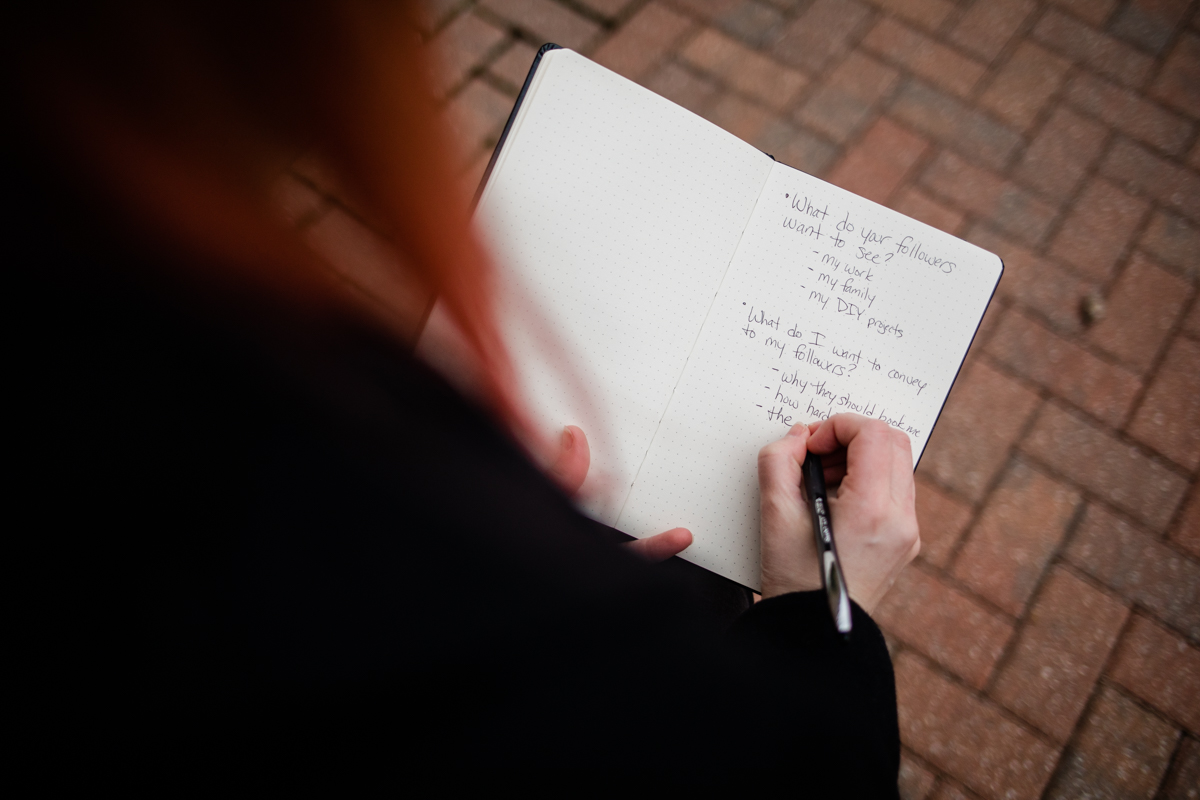 • What do your followers
want to see?
- my work
- my family
- my DIY projects
• What do I want to convey
to my followers?
- why they should book me
- how hard
- the